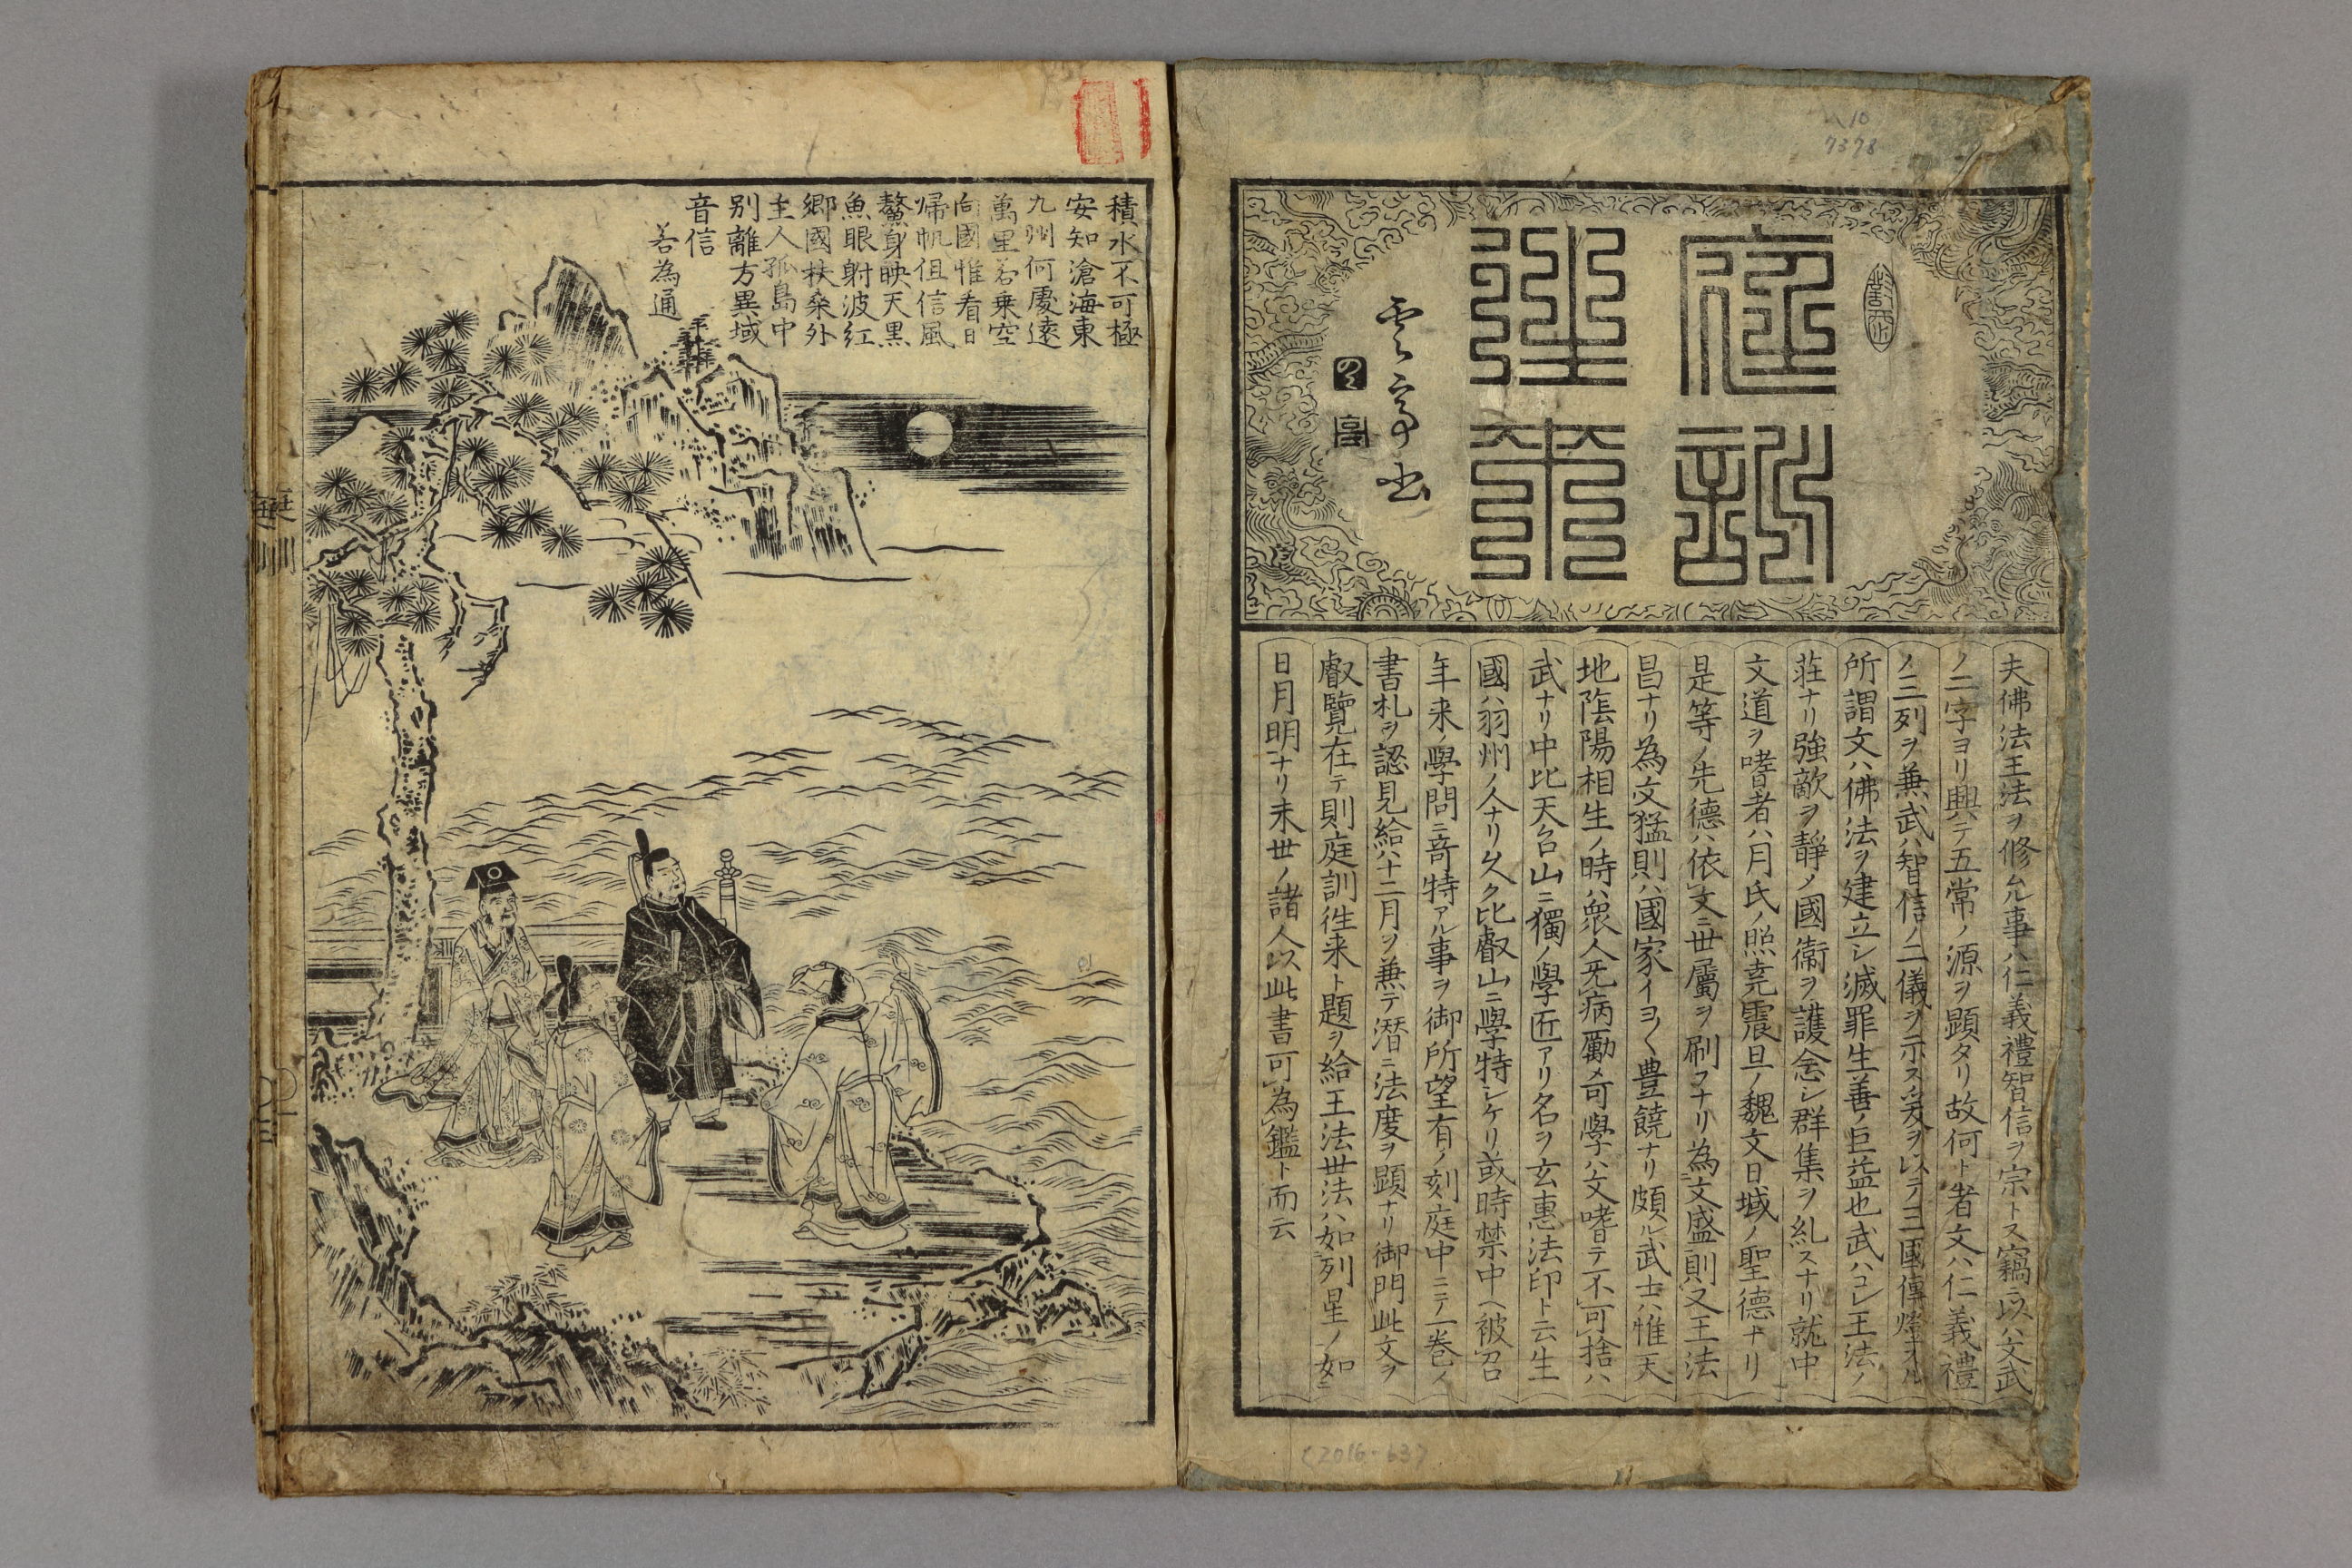 庭訓
往来
雲亭書
夫佛法王法ヲ修ル事ハ仁義禮智信ヲ宗トス竊ニ以ハ文武
ノ二字ヨリ興テ五常ノ源ヲ顕タリ故何ト者文ハ仁義禮
ノ三列ヲ兼武ハ智信ノ二儀ヲ示ス爰ヲ以テ三國傳燈ナル
所謂文ハ佛法ヲ建立シ滅罪生善ノ巨益也武ハコレ王法ノ
荘ナリ強敵ヲ静メ國衞ヲ護念シ群集ヲ糺スナリ就中
文道ヲ嗜者ハ月氏ノ照尭震旦ノ魏文日域ノ聖德ナリ
是等ノ先德ハ依文ニ世屬ヲ刷フナリ為文盛則又王法
昌ナリ為文猛則ハ國家イヨ〱豊饒ナリ頗ル武士ハ惟天
地陰陽相生ノ時ハ衆人旡病勵メ可學ハ文嗜テ不可捨ハ
武ナリ中比天台山ニ獨ノ學匠アリ名ヲ玄惠法印ト云生
國ハ羽州ノ人ナリ久ク比叡山ニ學特シケリ或時禁中ヘ被召
年来ノ學問ニ竒特アル事ヲ御所望有ノ刻庭中ニテ一巻ノ
書札ヲ認見給ハ十二月ヲ兼テ潜ニ法度ヲ顕ナリ御門此文ヲ
叡覽在テ則庭訓徃来ト題ヲ給王法世法ハ如列星ノ如ニ
日月明ナリ末世ノ諸人以此書可為鑑ト而云
積水不可極
安知滄海東
九州何處遠
萬里若乗空
向國惟看日
帰帆但信風
鰲身映天黒
魚眼射波紅
郷國扶桑外
主人孤島中
别離方異域
音信
若為通
庭訓
〇一
10
7378
(2016-63)